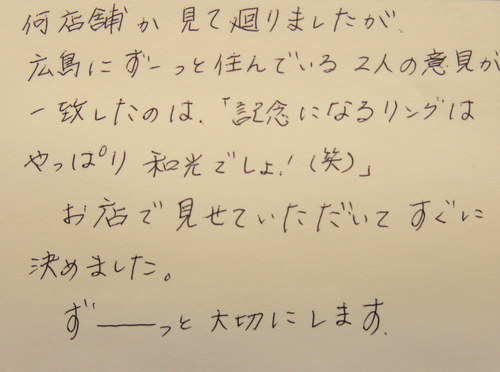 何店舗か見て廻りましたが、
広島にずーっと住んでいる2人の意見が
一致したのは、「記念になるリングは
やっぱり和光でしょ！（笑）」
お店で見せていただいてすぐに
決めました。
ず――っと大切にします。